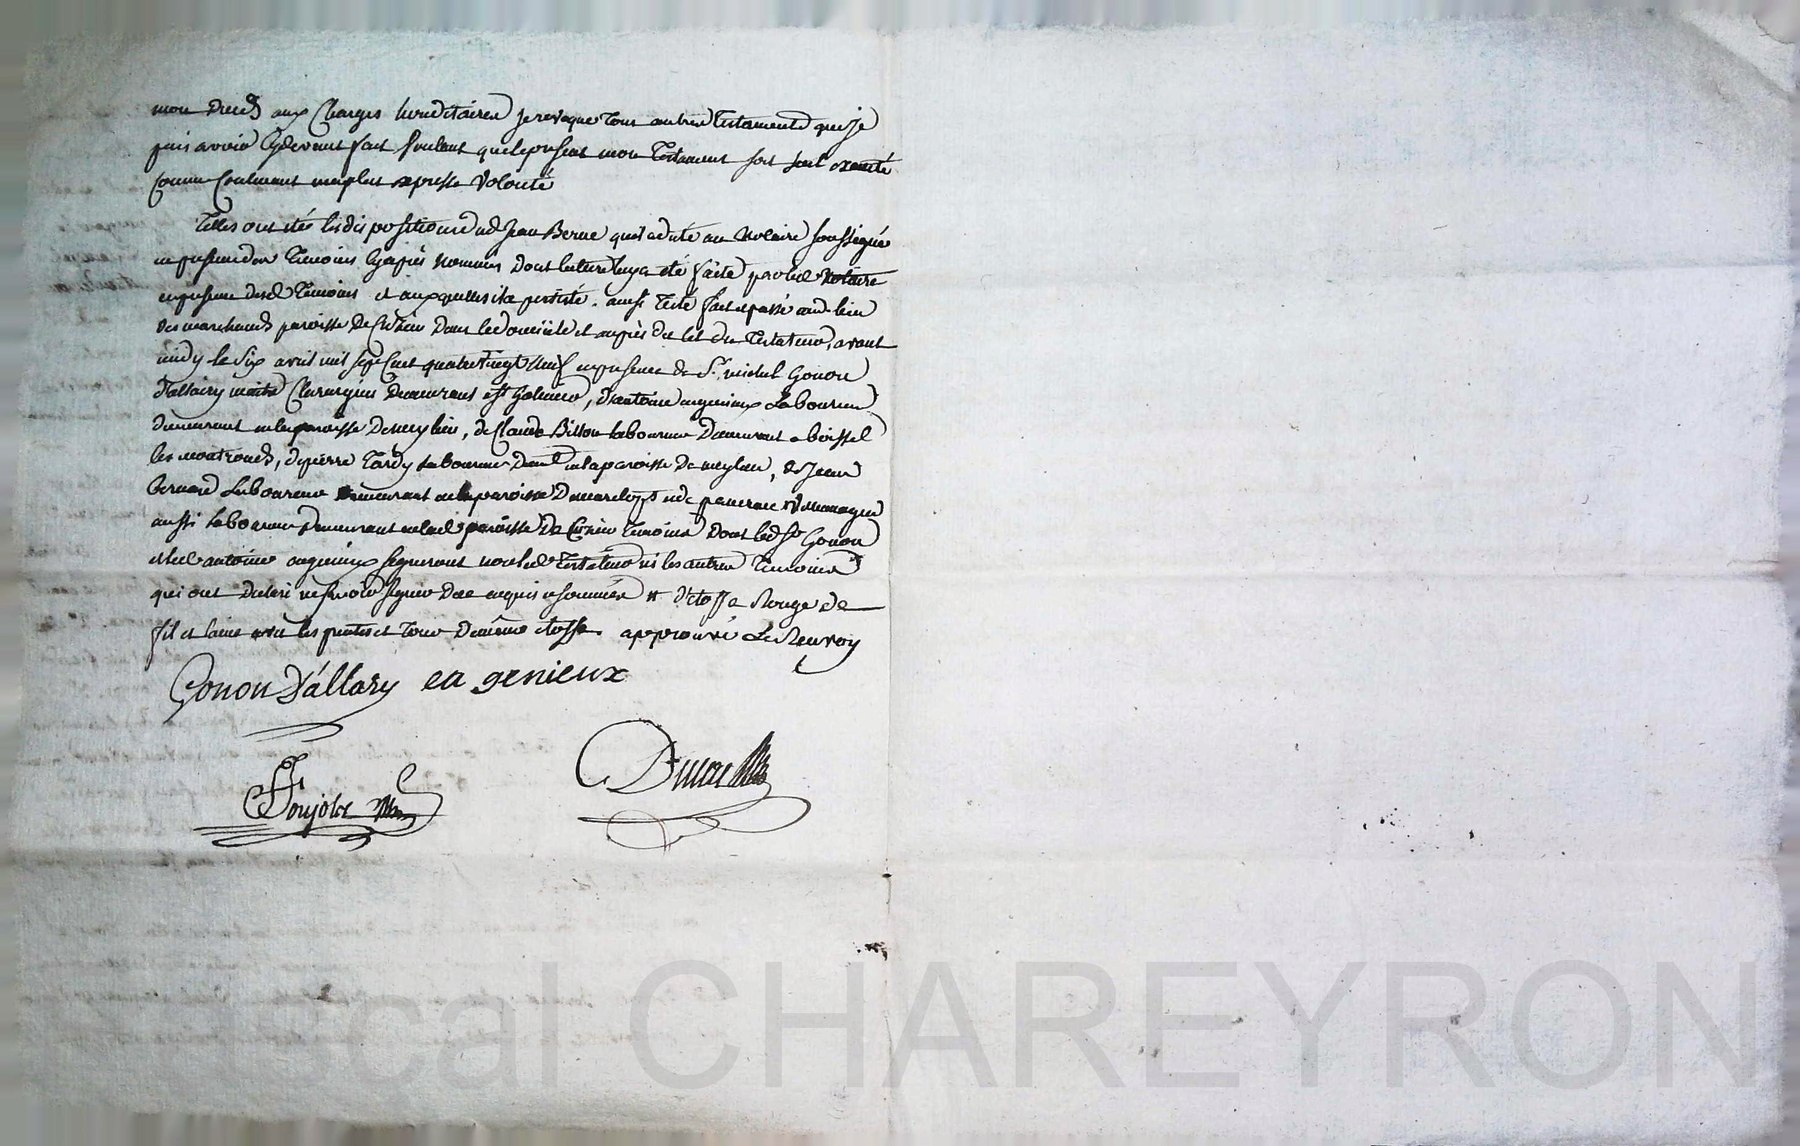 mon deces aux Charges hereditaires Je revoque tous autres testaments que je
puis avoir Cydevant fait Voulant que le present mon Testament soit seul executé
Comme Contenant ma plus expresse Volonté
Telles ont étés les dispositions dud Jean Berne qu'il a dicté au Notaire soussigné
en presence des Temoins Cy après Nommés dont lecture luy a été faite par led Notaire
en presence desd Temoins et auxquelles il a persisté. ainsi Testé fait et passé aud. lieu
des marchands paroisse de Cuzieu dans le domicile et auprès du lit du Testateur, avant
midy le Six avril mil sept Cent quatre vingt neuf en presence de Sr. michel Gonon
D'allary maitre Chirurgien demeurant a St Galmier, d'antoine augenieux Laboureur
demeurant en la paroisse de meylieu, de Claude Bisson Laboureur Demeurant a boisset
les montronds, de pierre Tardy Laboureur demt en la paroisse de meylieu, de Jean
Bernard Laboureur demeurant en la paroisse de et de
aussi Laboureur demeurant en lad. paroisse de Cuzieu Temoins dont led Sr Gonon
et led antoine augenieux signeront non led Testateur ni les autres Temoins
qui ont declaré ne savoir signer de ce enquis et sommés # d'etoffe Rouge de
fil et laine avec les pentes et Tour de même etoffe. approuvé Le Renvoy
Gonon D'allary ea genieux
Poujolat